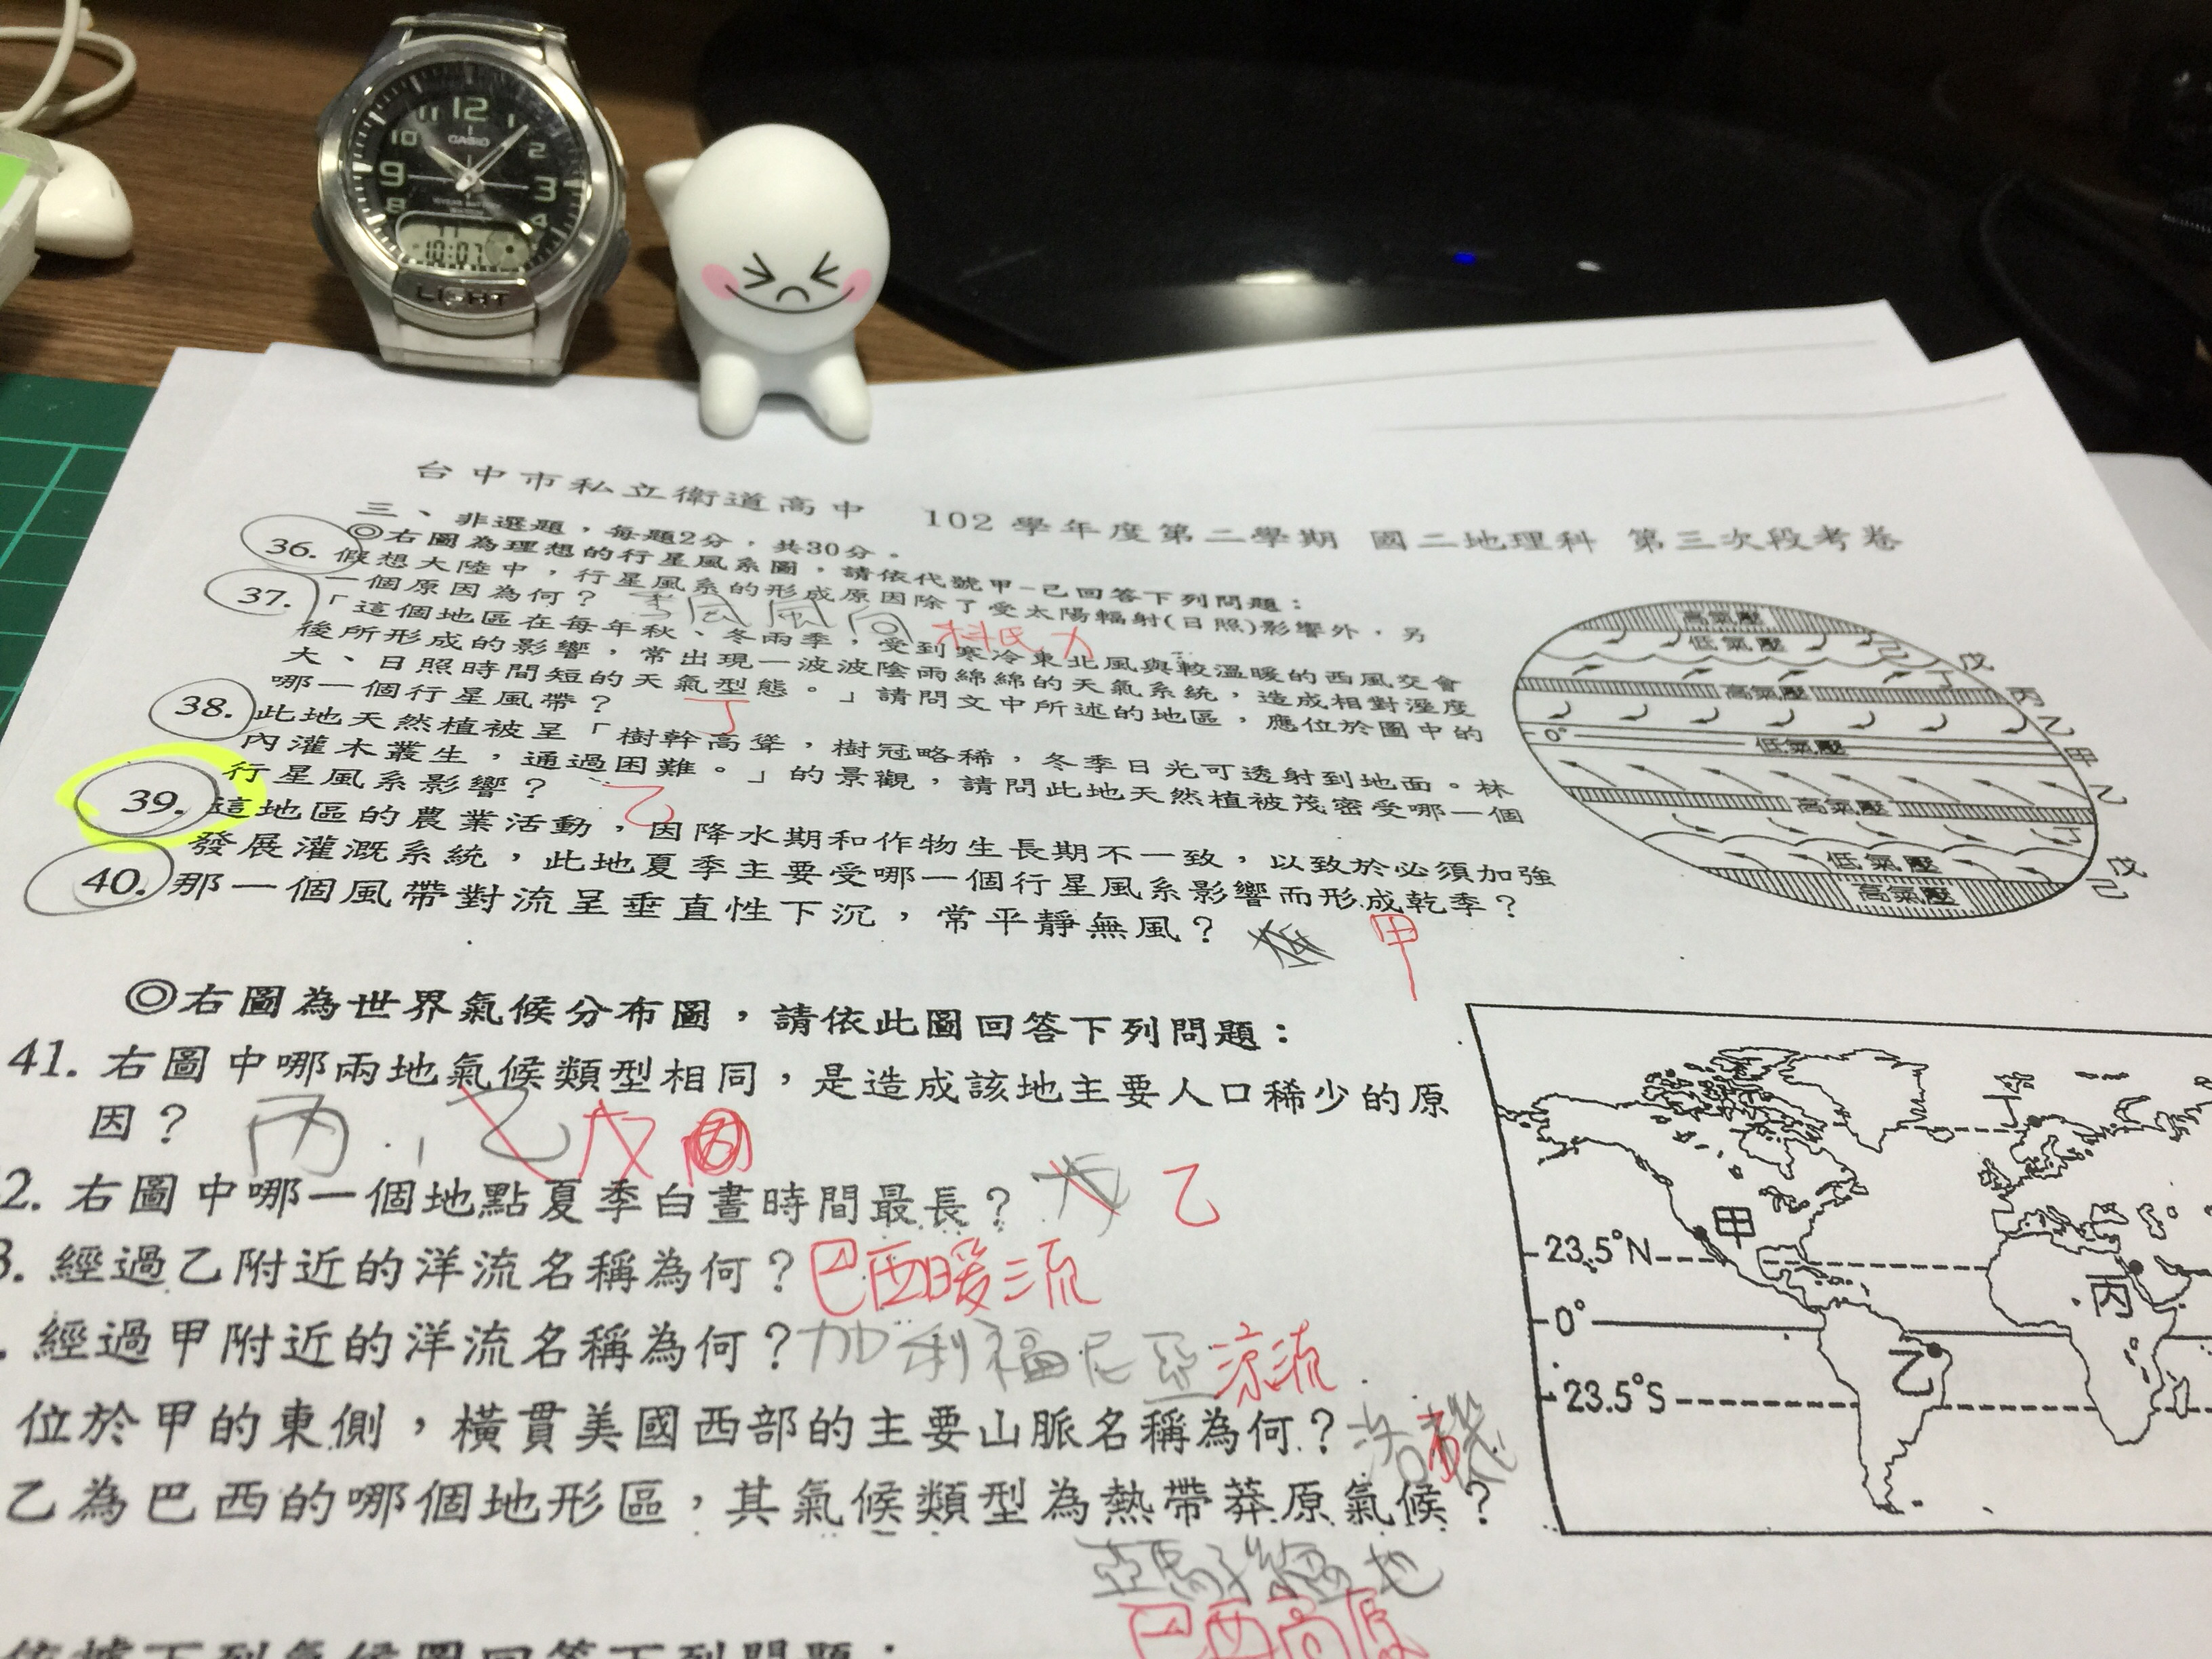 12
11
1
10
2
CASIO
9
3
8
4
10:07
LIGHT
台中市私立衛道高中 102學年度第二學期 國二地理科 第三次段考卷
三、非選題，每題2分，共30分。
◎右圖為理想的行星風系圖，請依代號甲-己回答下列問題：
36. 假想大陸中，行星風系的形成原因除了受太陽輻射(日照)影響外，另
一個原因為何？ 科氏力
37. 「這個地區在每年秋、冬兩季，受到寒冷東北風與較溫暖的西風交會
後所形成的影響，常出現一波波陰雨綿綿的天氣系統，造成相對溼度
大、日照時間短的天氣型態。」請問文中所述的地區，應位於圖中的
哪一個行星風帶？ 丁
38. 此地天然植被呈「樹幹高聳，樹冠略稀，冬季日光可透射到地面。林
內灌木叢生，通過困難。」的景觀，請問此地天然植被茂密受哪一個
行星風系影響？ 乙
39. 這地區的農業活動，因降水期和作物生長期不一致，以致於必須加強
發展灌溉系統，此地夏季主要受哪一個行星風系影響而形成乾季？
40. 那一個風帶對流呈垂直性下沉，常平靜無風？ 甲
高氣壓
低氣壓 己
戊
丁
高氣壓 丙
乙
0°
低氣壓 甲
乙
高氣壓
丁
低氣壓 戊
高氣壓 己
◎右圖為世界氣候分布圖，請依此圖回答下列問題：
41. 右圖中哪兩地氣候類型相同，是造成該地主要人口稀少的原
因？ 丙、乙 戊
2. 右圖中哪一個地點夏季白晝時間最長？ 乙
3. 經過乙附近的洋流名稱為何？巴西暖流
. 經過甲附近的洋流名稱為何？加利福尼亞涼流
位於甲的東側，橫貫美國西部的主要山脈名稱為何？洛磯
乙為巴西的哪個地形區，其氣候類型為熱帶莽原氣候？
亞馬遜盆地
巴西高原
丁
甲
23.5°N
丙
0°
乙
23.5°S
依據下列氣候圖回答下列問題：